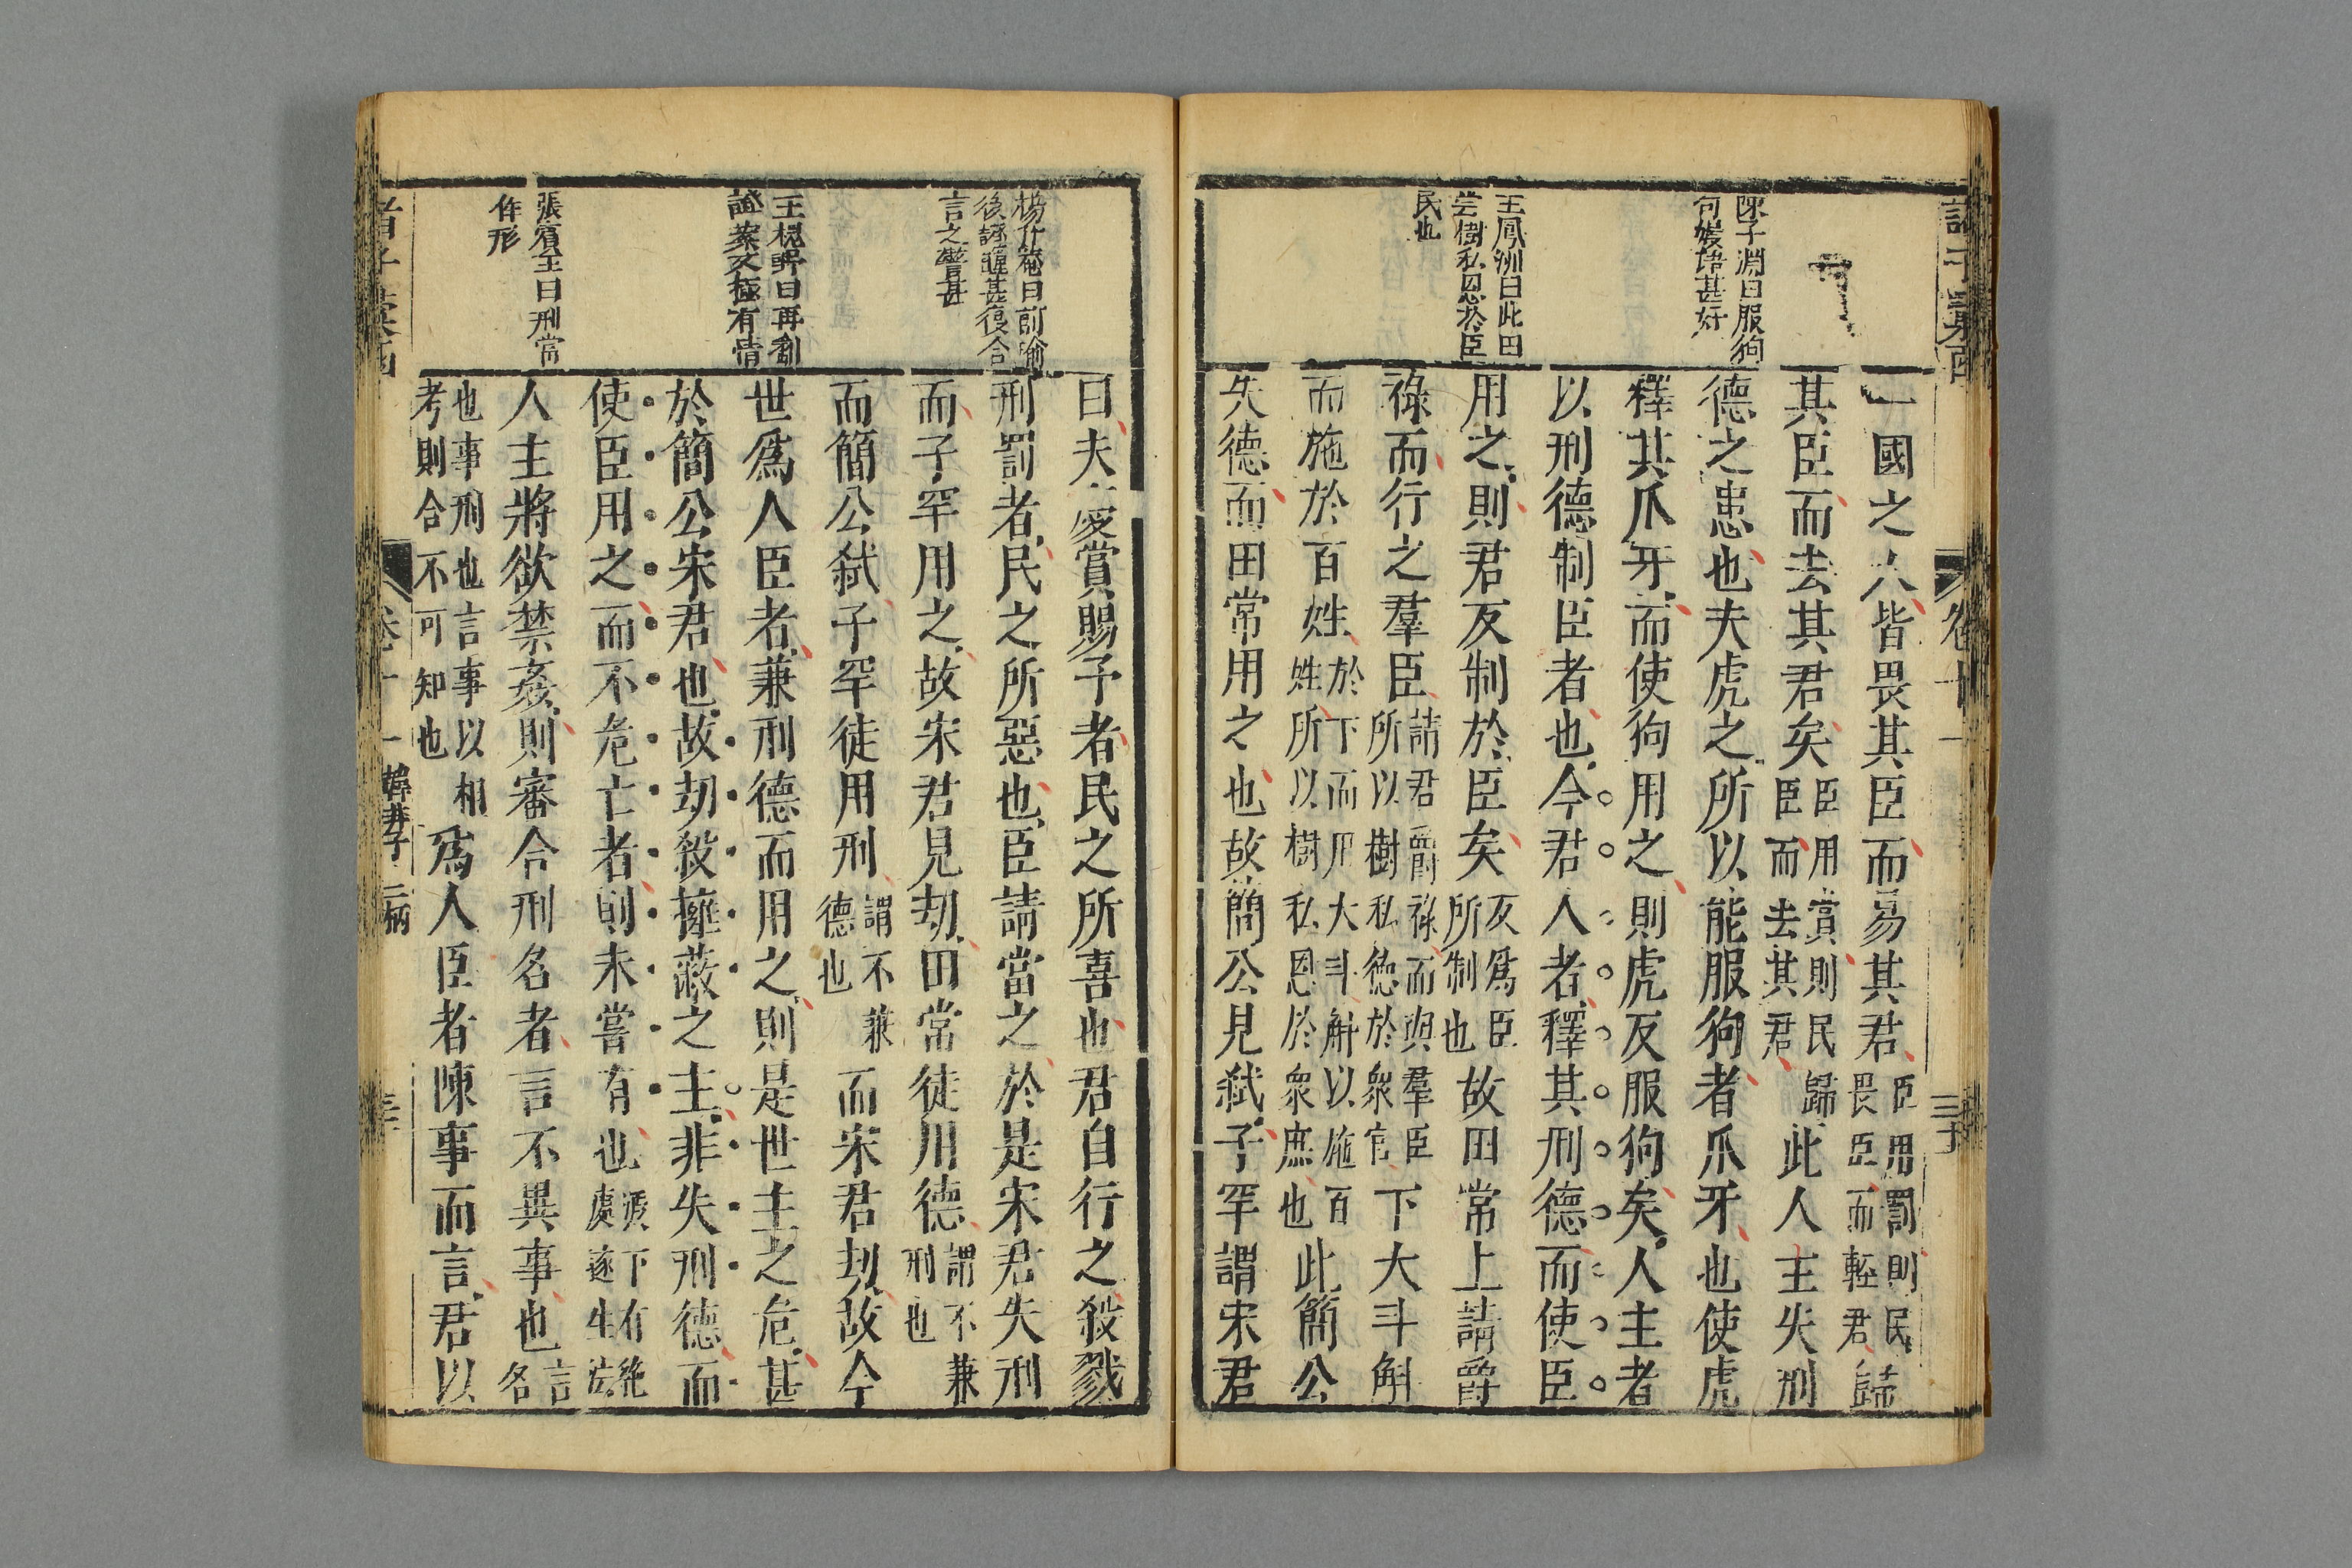 陳子淵曰服狗
句媛語甚好
王鳳洲曰此田
尝樹私恩於臣
民也
一國之人皆畏其臣而易其君臣用罰則民歸
畏臣而輕君
其臣而去其君矣臣用賞則民歸
臣而去其君此人主失刑
德之患也夫虎之所以能服狗者爪牙也使虎
釋其爪牙而使狗用之則虎反服狗矣人主者
以刑德制臣者也今君人者釋其刑德而使臣
用之則君反制於臣矣反爲臣
所制也故田常上請爵
祿而行之羣臣請君爵祿而與羣臣
所以樹私德於衆官下大斗斛
而施於百姓於下而用大斗斛以施百
姓所以樹私恩於衆庶也此簡公
失德而田常用之也故簡公見弑子罕謂宋君
諸子彙函
卷十一
三十
楊升菴曰前喻
後証蘊甚復合
言之警甚
王槐野曰再劄
證案文極有情
張賓王曰刑當
作形
曰夫慶賞賜予者民之所喜也君自行之殺戮
刑罰者民之所惡也臣請當之於是宋君失刑
而子罕用之故宋君見劫田常徒用德謂不兼
刑也
而簡公弑子罕徒用刑謂不兼
德也而宋君劫故今
世爲人臣者兼刑德而用之則是世主之危甚
於簡公宋君也故劫殺擁蔽之主非失刑德而
使臣用之而不危亡者則未嘗有也
人主將欲禁姦則審合刑名者言不異事也言
名
也事刑也言事以相
考則合不可知也爲人臣者陳事而言君以
卷十一
韓非子
二柄